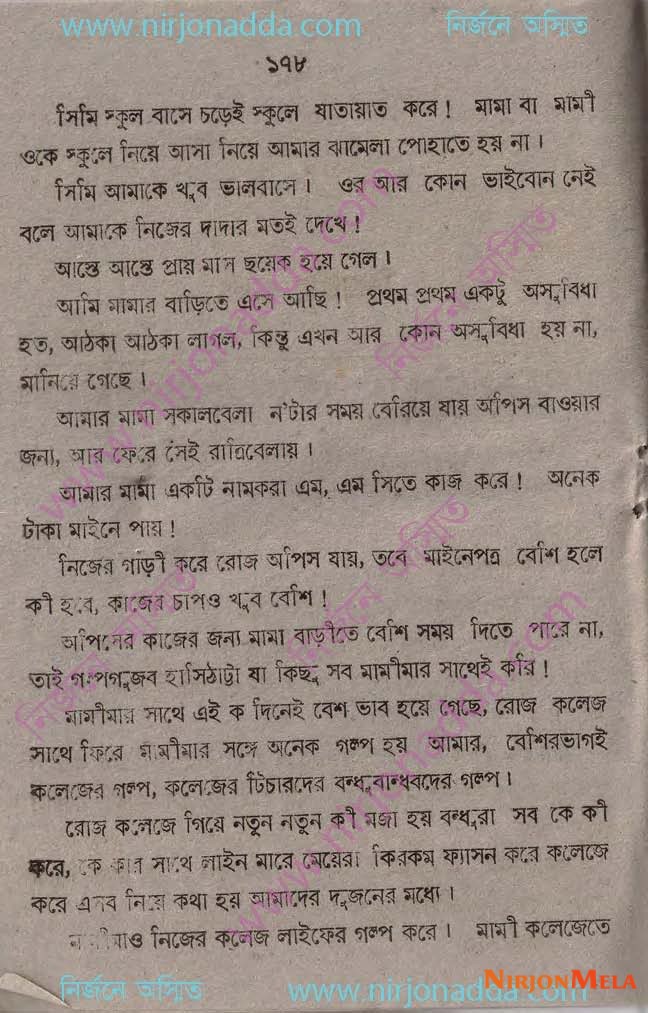 www.nirjonadda.com নির্জনে অস্মিত
১৭৮
সিমি স্কুল বাসে চড়েই স্কুলে যাতায়াত করে! মামা বা মামী
ওকে স্কুলে নিয়ে আসা নিয়ে আমার ঝামেলা পোহাতে হয় না।
সিমি আমাকে খুব ভালবাসে। ওর আর কোন ভাইবোন নেই
বলে আমাকে নিজের দাদার মতই দেখে!
আস্তে আস্তে প্রায় মাস ছয়েক হয়ে গেল।
আমি মামার বাড়িতে এসে আছি! প্রথম প্রথম একটু অসুবিধা
হত, আঠকা আঠকা লাগল, কিন্তু এখন আর কোন অসুবিধা হয় না,
মানিয়ে গেছে।
আমার মামা সকালবেলা ন'টার সময় বেরিয়ে যায় অপিস যাওয়ার
জন্য, আর ফেরে সেই রাত্রিবেলায়।
আমার মামা একটি নামকরা এম, এম সিতে কাজ করে! অনেক
টাকা মাইনে পায়!
নিজের গাড়ী করে রোজ অপিস যায়, তবে মাইনেপত্র বেশি হলে
কী হবে, কাজের চাপও খুব বেশি!
অপিসের কাজের জন্য মামা বাড়ীতে বেশি সময় দিতে পারে না,
তাই গল্পগুজব হাসিঠাট্টা যা কিছু সব মামীমার সাথেই করি!
মামীমার সাথে এই ক দিনেই বেশ ভাব হয়ে গেছে, রোজ কলেজ
সাথে ফিরে মামীমার সঙ্গে অনেক গল্প হয় আমার, বেশিরভাগই
কলেজের গল্প, কলেজের টিচারদের বন্ধুবান্ধবদের গল্প।
রোজ কলেজে গিয়ে নতুন নতুন কী মজা হয় বন্ধুরা সব কে কী
করে, কে কার সাথে লাইন মারে মেয়েরা কিরকম ফ্যাসন করে কলেজে
করে এসব নিয়ে কথা হয় আমাদের দুজনের মধ্যে।
মামীমাও নিজের কলেজ লাইফের গল্প করে। মামী কলেজেতে
NIRJONMELA
নির্জনে অস্মিত www.nirjonadda.com